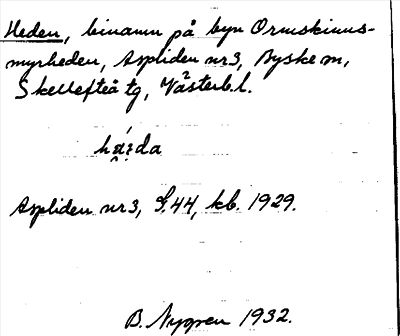 Heden, binamn på byn Ormskinns-
myrheden, Aspliden nr 3, Byske sn,
Skellefteå tg, Västerb. l.
Aspliden nr 3, S. 44, kb. 1929.
B. Nygren 1932.